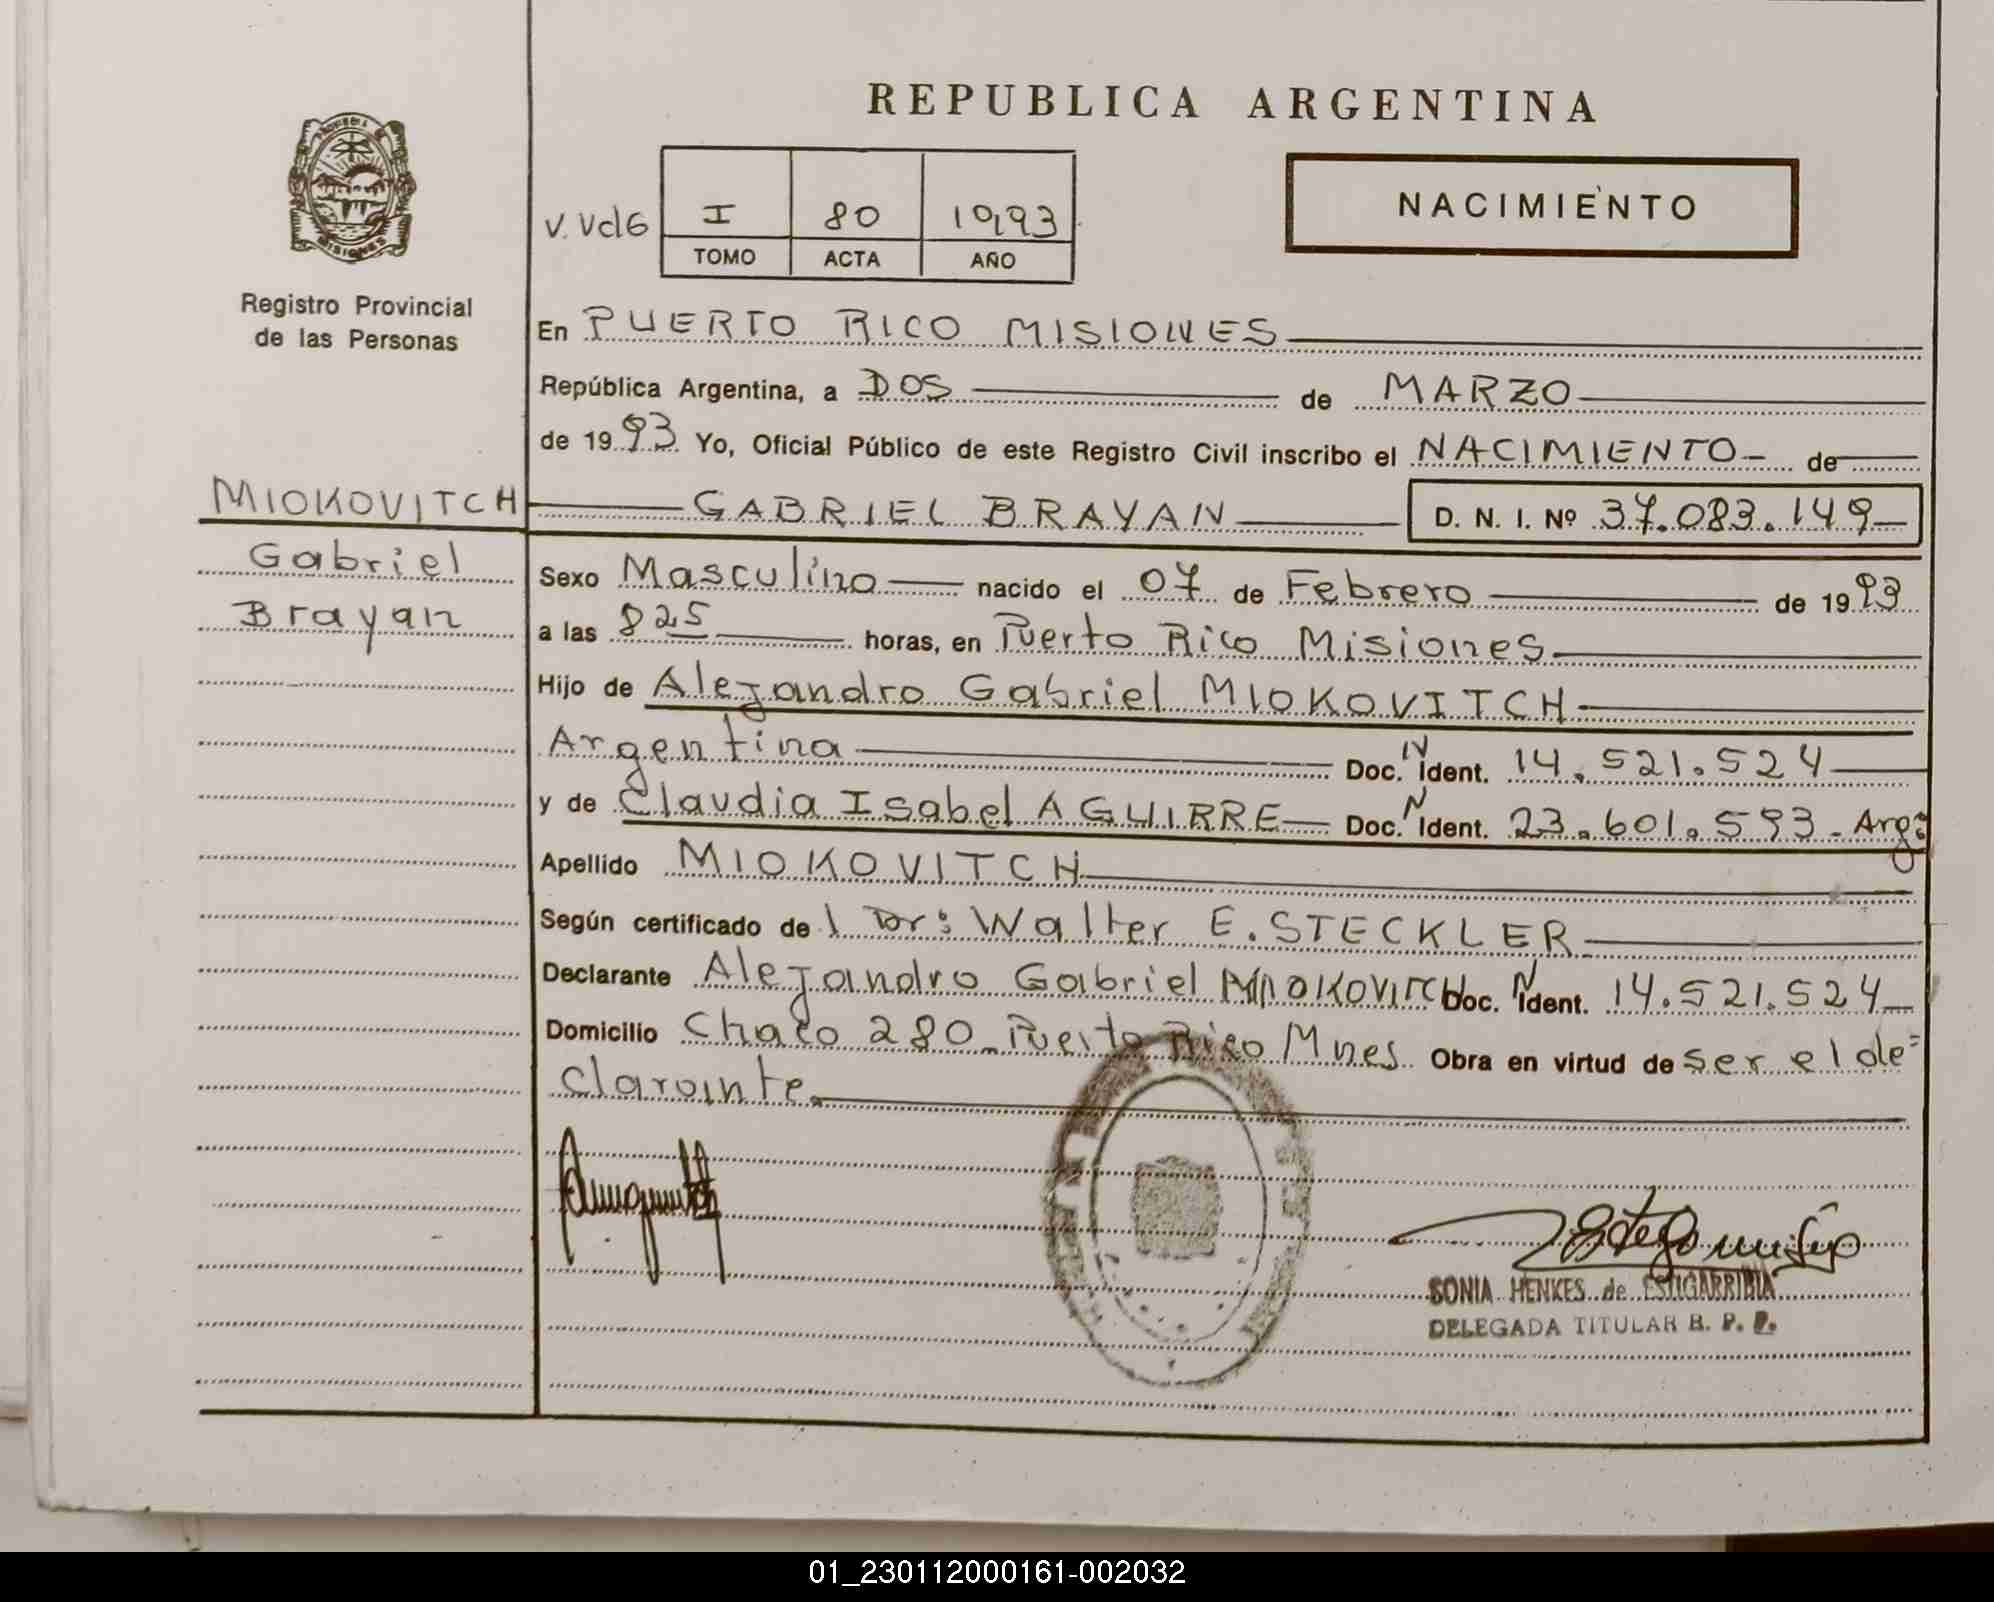 REPUBLICA ARGENTINA
PROVINCIA DE MISIONES
Registro Provincial
de las Personas
NACIMIENTO
V. Vd6
I 80 1993
TOMO ACTA AÑO
En PUERTO RICO MISIONES
República Argentina, a DOS de MARZO
de 1993 Yo, Oficial Público de este Registro Civil inscribo el NACIMIENTO de
MIOKOVITCH GABRIEL BRAYAN D. N. I. Nº 37.083.149
Gabriel
Brayan
Sexo Masculino nacido el 07 de Febrero de 1993
a las 825 horas, en Puerto Rico Misiones
Hijo de Alejandro Gabriel MIOKOVITCH
Argentina Doc. N Ident. 14.521.524
y de Claudia Isabel AGUIRRE Doc. N Ident. 23.601.593. Arg
Apellido MIOKOVITCH
Según certificado de l Dr: Walter E. STECKLER
Declarante Alejandro Gabriel MIOKOVITCH Doc. N Ident. 14.521.524
Domicilio Chaco 280 Puerto Rico Mnes Obra en virtud de ser el de=
clarante.
SONIA HENKES de ESTIGARRIBIA
DELEGADA TITULAR R. P. P.
01_230112000161-002032